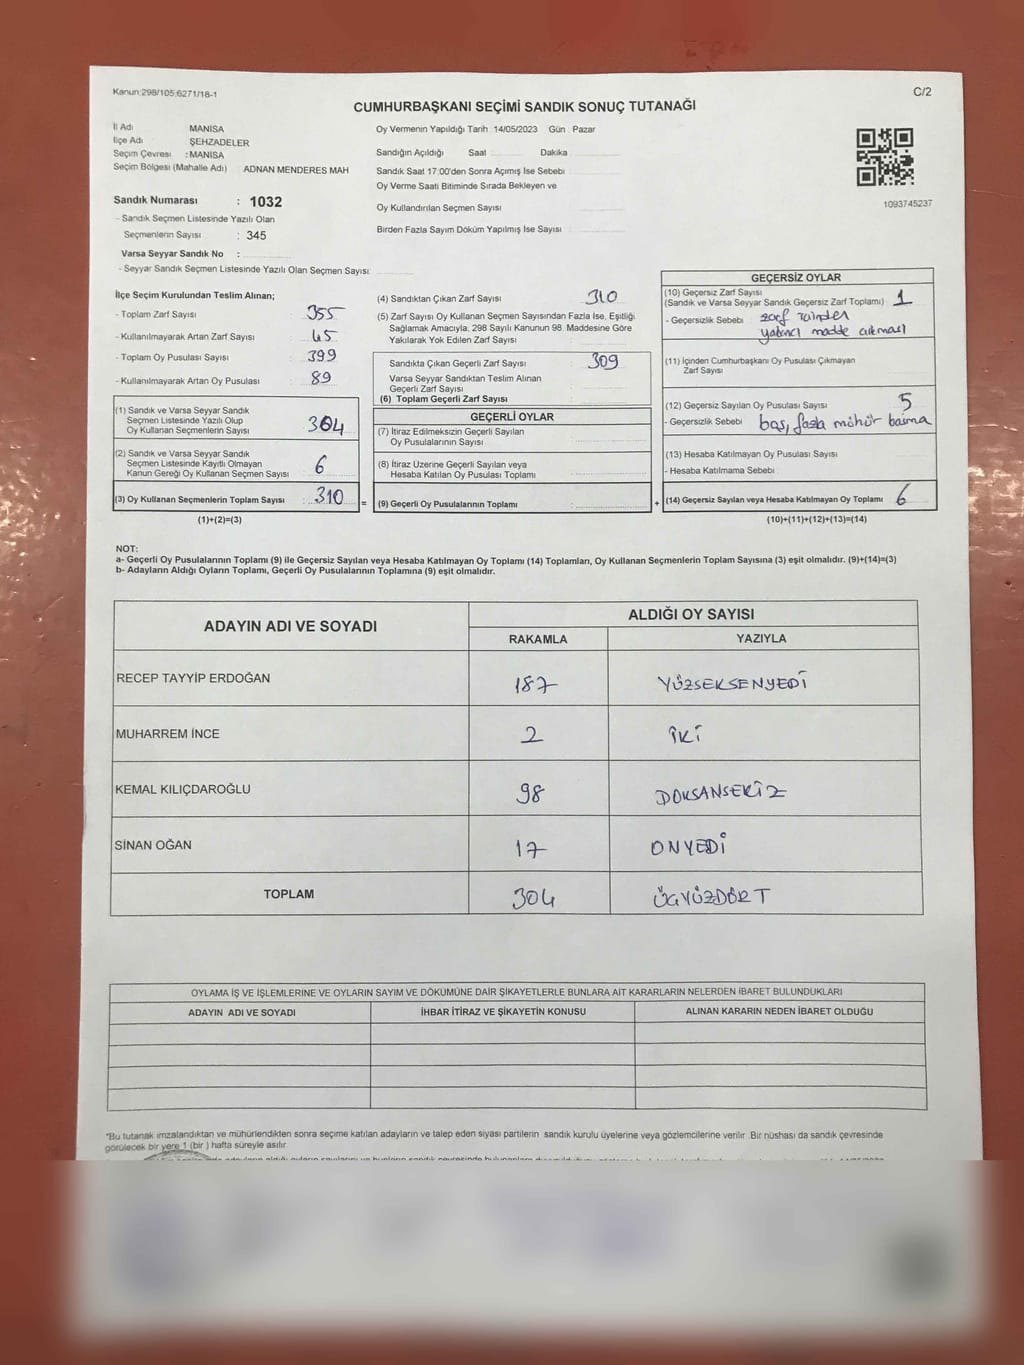 Kanun:298/105,6271/18-1
C/2
CUMHURBAŞKANI SEÇİMİ SANDIK SONUÇ TUTANAĞI
İl Adı MANİSA
İlçe Adı ŞEHZADELER
Seçim Çevresi :MANİSA
Seçim Bölgesi (Mahalle Adı) ADNAN MENDERES MAH
Sandık Numarası : 1032
- Sandık Seçmen Listesinde Yazılı Olan
Seçmenlerin Sayısı : 345
Varsa Seyyar Sandık No :
- Seyyar Sandık Seçmen Listesinde Yazılı Olan Seçmen Sayısı
Oy Vermenin Yapıldığı Tarih 14/05/2023 Gün : Pazar
Sandığın Açıldığı Saat Dakika
Sandık Saat 17:00'den Sonra Açımış İse Sebebi
Oy Verme Saati Bitiminde Sırada Bekleyen ve
Oy Kullandırılan Seçmen Sayısı
Birden Fazla Sayım Döküm Yapılmış İse Sayısı
1093745237
İlçe Seçim Kurulundan Teslim Alınan;
- Toplam Zarf Sayısı : 355
- Kullanılmayarak Artan Zarf Sayısı : 45
- Toplam Oy Pusulası Sayısı : 399
- Kullanılmayarak Artan Oy Pusulası : 89
(1) Sandık ve Varsa Seyyar Sandık
Seçmen Listesinde Yazılı Olup
Oy Kullanan Seçmenlerin Sayısı : 304
(2) Sandık ve Varsa Seyyar Sandık
Seçmen Listesinde Kayıtlı Olmayan
Kanun Gereği Oy Kullanan Seçmen Sayısı : 6
(3) Oy Kullanan Seçmenlerin Toplam Sayısı : 310 =
(1)+(2)=(3)
(4) Sandıktan Çıkan Zarf Sayısı : 310
(5) Zarf Sayısı Oy Kullanan Seçmen Sayısından Fazla İse, Eşitliği
Sağlamak Amacıyla, 298 Sayılı Kanunun 98. Maddesine Göre
Yakılarak Yok Edilen Zarf Sayısı :
Sandıkta Çıkan Geçerli Zarf Sayısı : 309
Varsa Seyyar Sandıktan Teslim Alınan
Geçerli Zarf Sayısı :
(6) Toplam Geçerli Zarf Sayısı :
GEÇERLİ OYLAR
(7) İtiraz Edilmeksizin Geçerli Sayılan
Oy Pusulalarının Sayısı :
(8) İtiraz Üzerine Geçerli Sayılan veya
Hesaba Katılan Oy Pusulası Toplamı :
(9) Geçerli Oy Pusulalarının Toplamı : +
GEÇERSİZ OYLAR
(10) Geçersiz Zarf Sayısı
(Sandık ve Varsa Seyyar Sandık Geçersiz Zarf Toplamı) : 1
- Geçersizlik Sebebi : zarf içinden
yabancı madde çıkması
(11) İçinden Cumhurbaşkanı Oy Pusulası Çıkmayan
Zarf Sayısı :
(12) Geçersiz Sayılan Oy Pusulası Sayısı : 5
- Geçersizlik Sebebi : boş, fazla mühür basma
(13) Hesaba Katılmayan Oy Pusulası Sayısı :
- Hesaba Katılmama Sebebi :
(14) Geçersiz Sayılan veya Hesaba Katılmayan Oy Toplamı : 6
(10)+(11)+(12)+(13)=(14)
NOT:
a- Geçerli Oy Pusulalarının Toplamı (9) ile Geçersiz Sayılan veya Hesaba Katılmayan Oy Toplamı (14) Toplamları, Oy Kullanan Seçmenlerin Toplam Sayısına (3) eşit olmalıdır. (9)+(14)=(3)
b- Adayların Aldığı Oyların Toplamı, Geçerli Oy Pusulalarının Toplamına (9) eşit olmalıdır.
ADAYIN ADI VE SOYADI
ALDIĞI OY SAYISI
RAKAMLA YAZIYLA
RECEP TAYYİP ERDOĞAN 187 YÜZSEKSENYEDİ
MUHARREM İNCE 2 İKİ
KEMAL KILIÇDAROĞLU 98 DOKSANSEKİZ
SİNAN OĞAN 17 ONYEDİ
TOPLAM 304 ÜÇYÜZDÖRT
OYLAMA İŞ VE İŞLEMLERİNE VE OYLARIN SAYIM VE DÖKÜMÜNE DAİR ŞİKAYETLERLE BUNLARA AİT KARARLARIN NELERDEN İBARET BULUNDUKLARI
ADAYIN ADI VE SOYADI İHBAR İTİRAZ VE ŞİKAYETİN KONUSU ALINAN KARARIN NEDEN İBARET OLDUĞU
*Bu tutanak imzalandıktan ve mühürlendikten sonra seçime katılan adayların ve talep eden siyasi partilerin sandık kurulu üyelerine veya gözlemcilerine verilir. Bir nüshası da sandık çevresinde
görülecek bir yere 1 (bir ) hafta süreyle asılır.